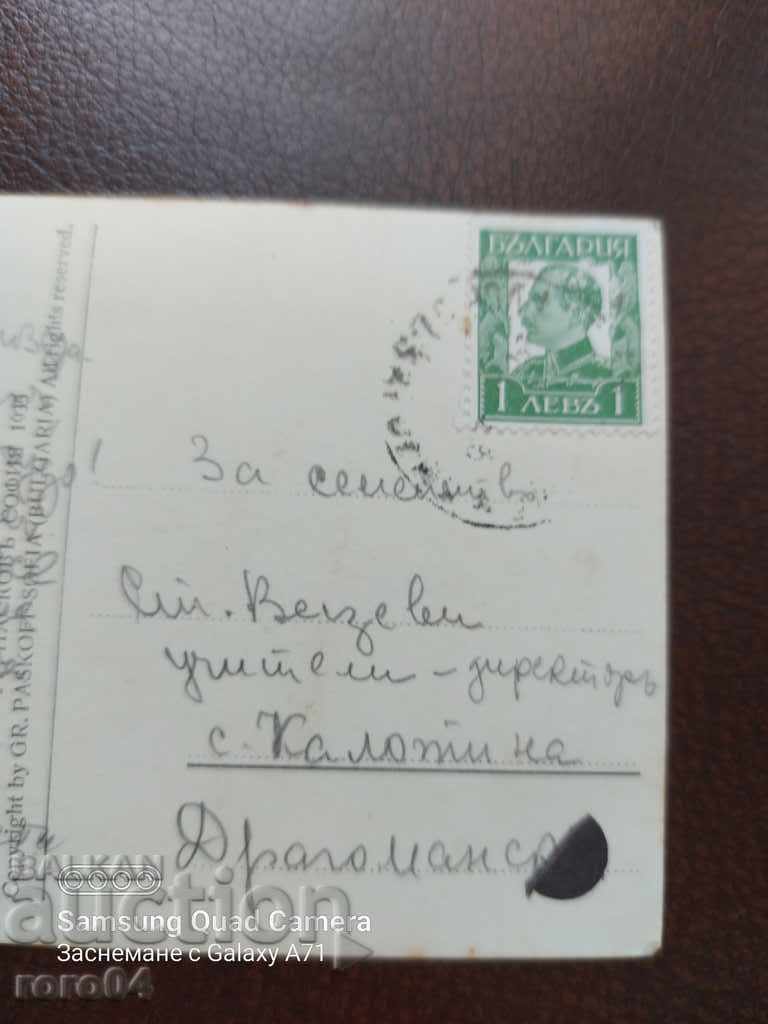 БЪЛГАРИЯ
1 ЛЕВЪ 1
За семейство
Ст. Велзеви
учители - директоръ
с. Калотина
Драгоманск
СОФИЯ
Copyright by GR. PASKOFF-SOFIA (BULGARIA) All rights reserved.
BALKAN
auction
Samsung Quad Camera
Заснемане с Galaxy A71
roro04